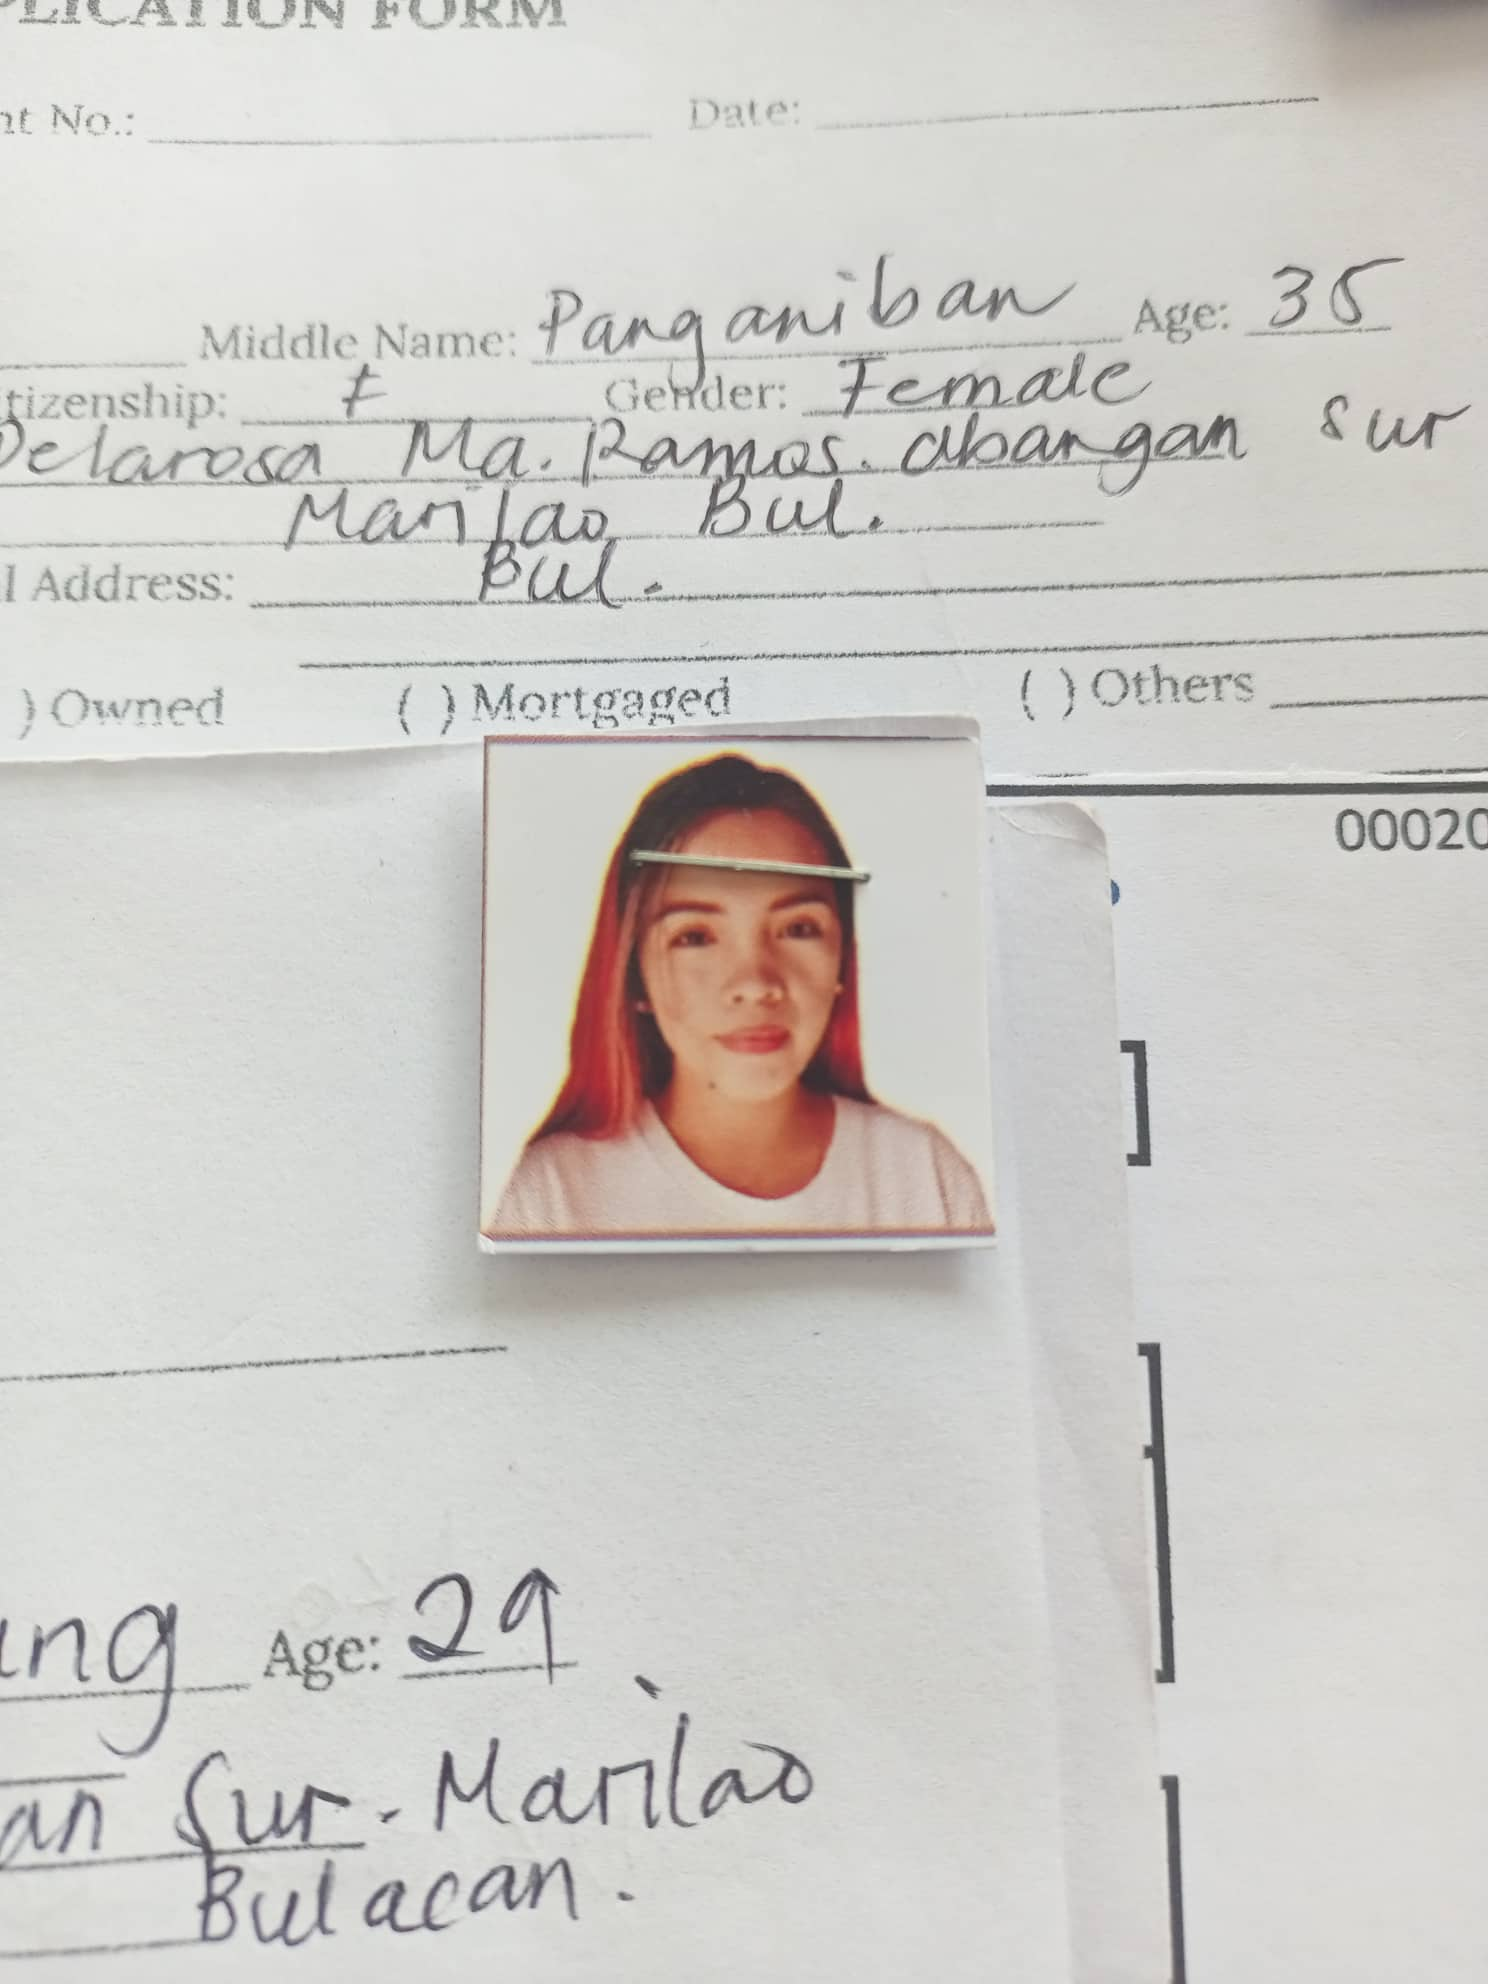 PLICATION FORM
nt No.: Date:
Middle Name: Panganiban Age: 35
tizenship: F Gender: Female
Delarosa Ma. Ramos. abangan sur
Marilao Bul.
l Address: Bul.
) Owned ( ) Mortgaged ( ) Others
00020
]
]
ang Age: 29
an Sur. Marilao
Bulacan.